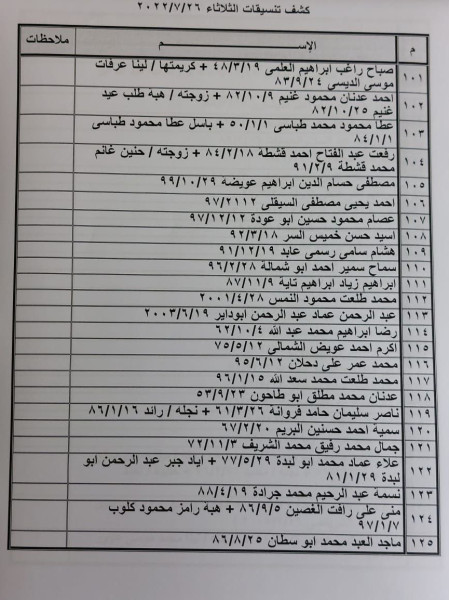 كشف تنسيقات الثلاثاء ٢٠٢٢/٧/٢٦
م الإســـــم ملاحظات
١٠١ صباح راغب ابراهيم العلمى ٤٨/٣/١٩ + كريمتها / لينا عرفات
موسى الديسي ٨٣/٩/٢٤
١٠٢ احمد عدنان محمود غنيم ٨٢/١٠/٩ + زوجته / هبة طلب عيد
غنيم ٨٢/١٠/٢٥
١٠٣ عطا محمود محمد طباسى ٥٠/١/١ + باسل عطا محمود طباسى
٨٤/١/١
١٠٤ رفعت عبد الفتاح احمد قشطة ٨٤/٢/١٨ + زوجته / حنين غانم
محمد قشطة ٩١/٢/٩
١٠٥ مصطفى حسام الدين ابراهيم عويضه ٩٩/١٠/٢٩
١٠٦ احمد يحيى مصطفى السيقلى ٩٧/٢١١٢
١٠٧ عصام محمود حسين ابو عودة ٩٧/١٢/١٢
١٠٨ اسيد حسن خميس السر ٩٢/٣/١٨
١٠٩ هشام سامى رسمى عابد ٩١/١٢/١٩
١١٠ سماح سمير احمد ابو شمالة ٩٦/٢/٢٨
١١١ ابراهيم زياد ابراهيم تاية ٨٧/١١/٩
١١٢ محمد طلعت محمود النمس ٢٠٠١/٤/٢٨
١١٣ عبد الرحمن عماد عبد الرحمن ابودابر ٢٠٠٣/٦/١٩
١١٤ رضا ابراهيم محمد عبد الله ٦٢/١٠/٤
١١٥ اكرم احمد عويض الشمالي ٧٥/٥/١٢
١١٦ محمد عمر على دحلان ٩٥/٦/١٢
١١٧ محمد طلعت محمد سعد الله ٩٦/١/١٥
١١٨ عدنان محمد مطلق ابو طاحون ٥٣/٩/٢٣
١١٩ ناصر سليمان حامد فروانة ٦١/٣/٢٦ + نجله / رائد ٨٦/١/١٦
١٢٠ سمية احمد حسنين البريم ٦٧/٢/٢٠
١٢١ جمال محمد رفيق محمد الشريف ٧٢/١١/٣
١٢٢ علاء عماد محمد ابو لبدة ٧٧/٥/٢٩ + اياد جبر عبد الرحمن ابو
لبدة ٨١/١/٢٩
١٢٣ نسمة عبد الرحيم محمد جرادة ٨٨/٤/١٩
١٢٤ منى على رافت الغصين ٨٦/٩/٥ + هبة رامز محمود كلوب
٩٧/١/٧
١٢٥ ماجد العبد محمد ابو سطان ٨٦/٨/٢٥